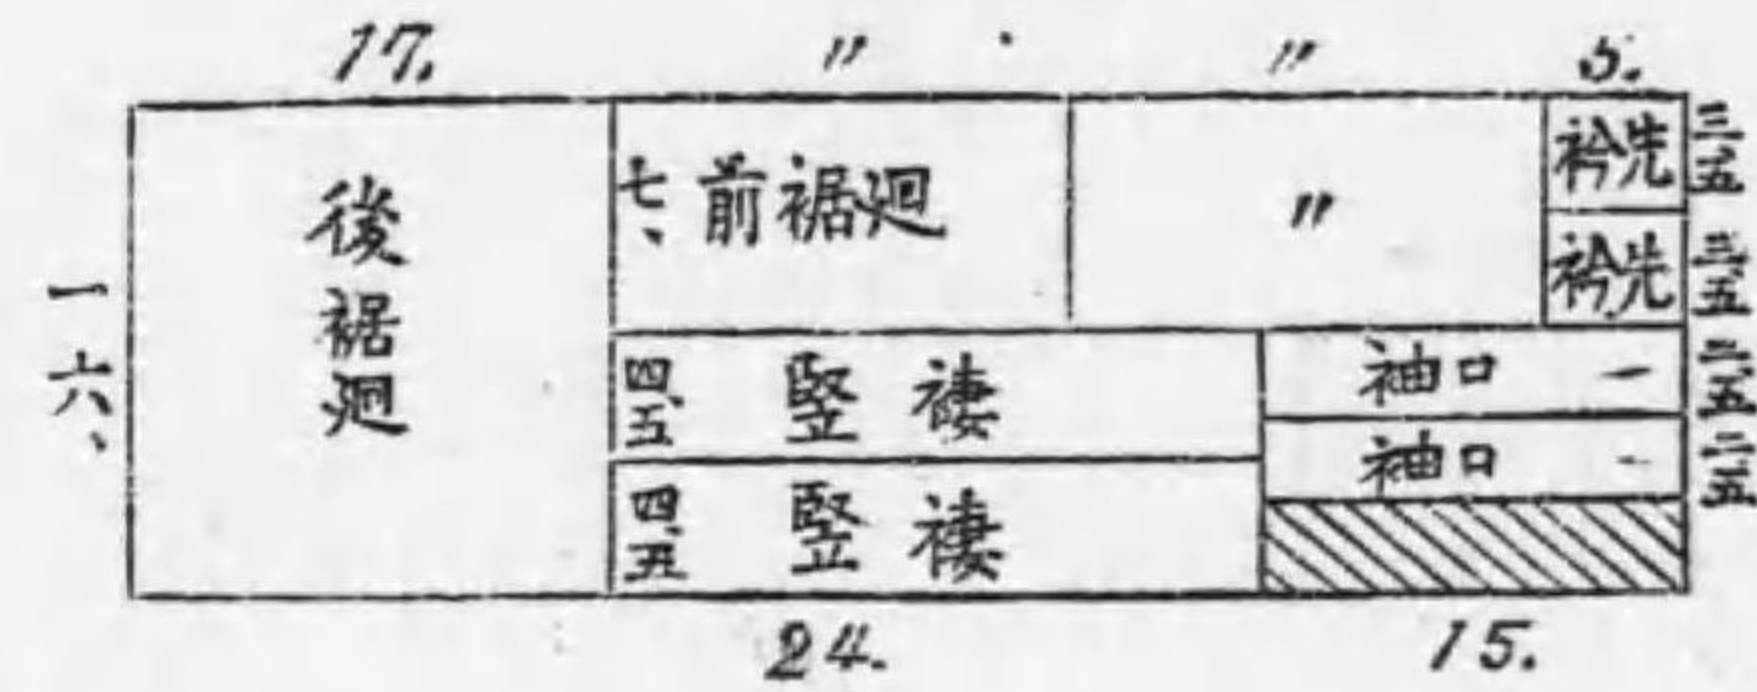 17. 〃 〃 5.
後裾廻
一六、
七、 前裾廻
〃
衿先 三、五
衿先 三、五
四、五 竪褄
四、五 竪褄
袖口 一 二、五
袖口 一 二、五
24. 15.